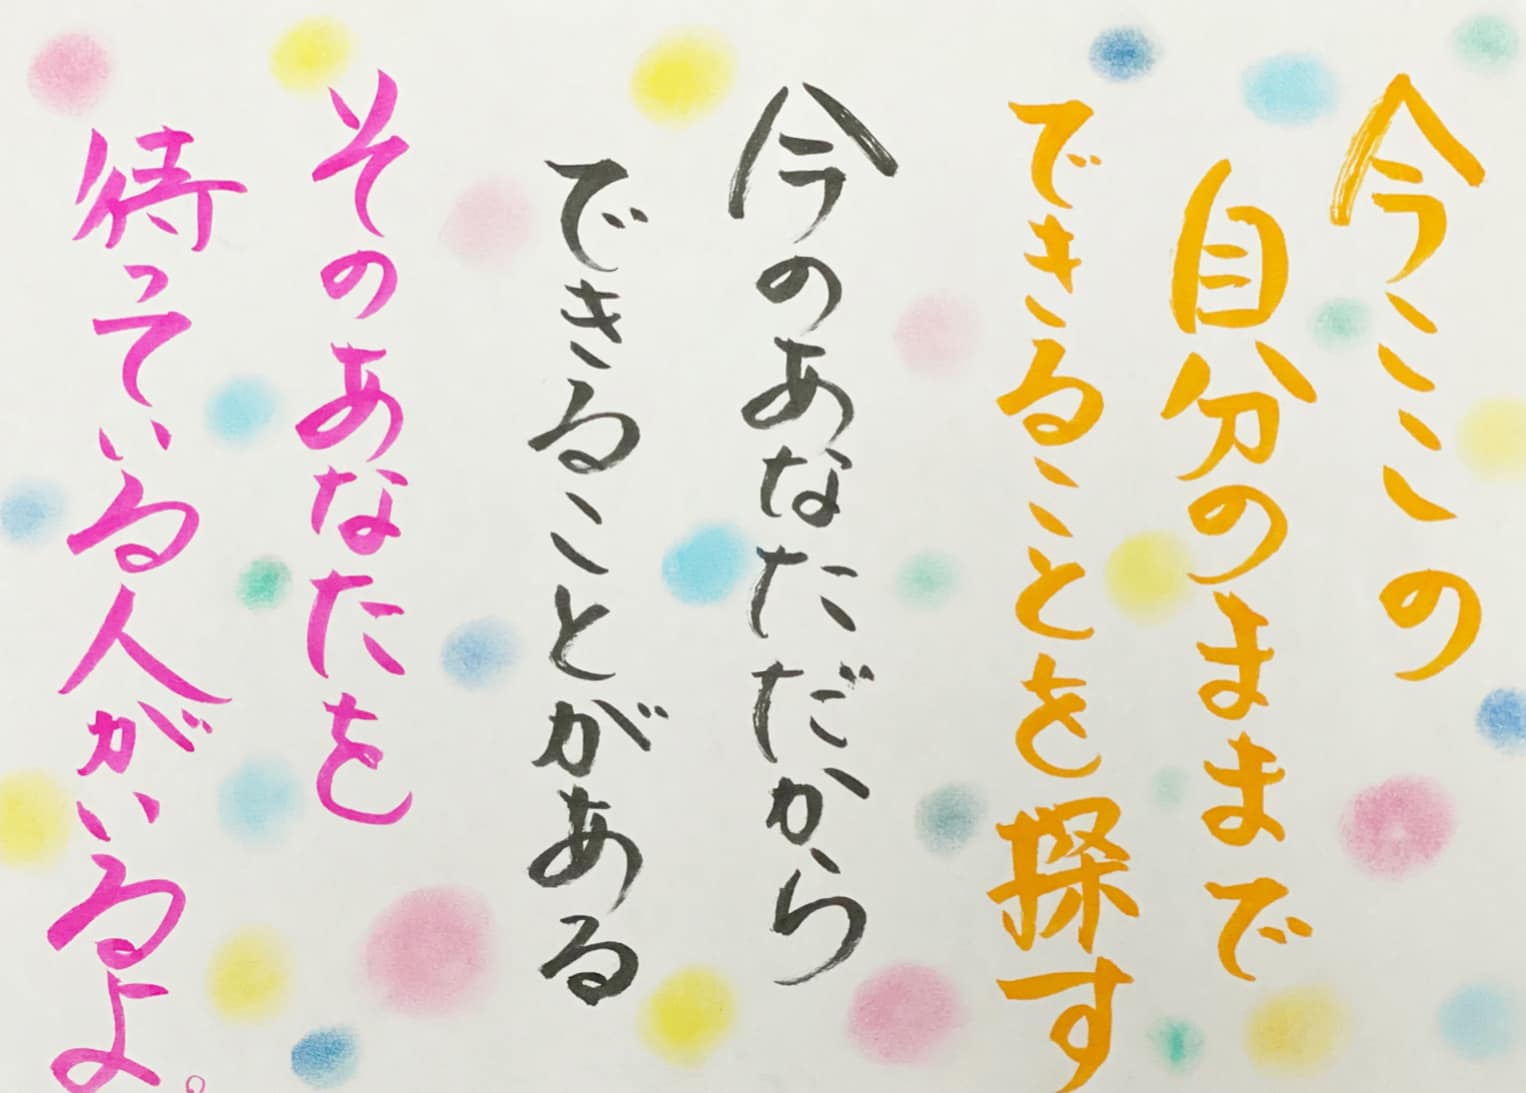 今ここの
自分のままで
できることを探す
今のあなただから
できることがある
そのあなたを
待っている人がいるよ。